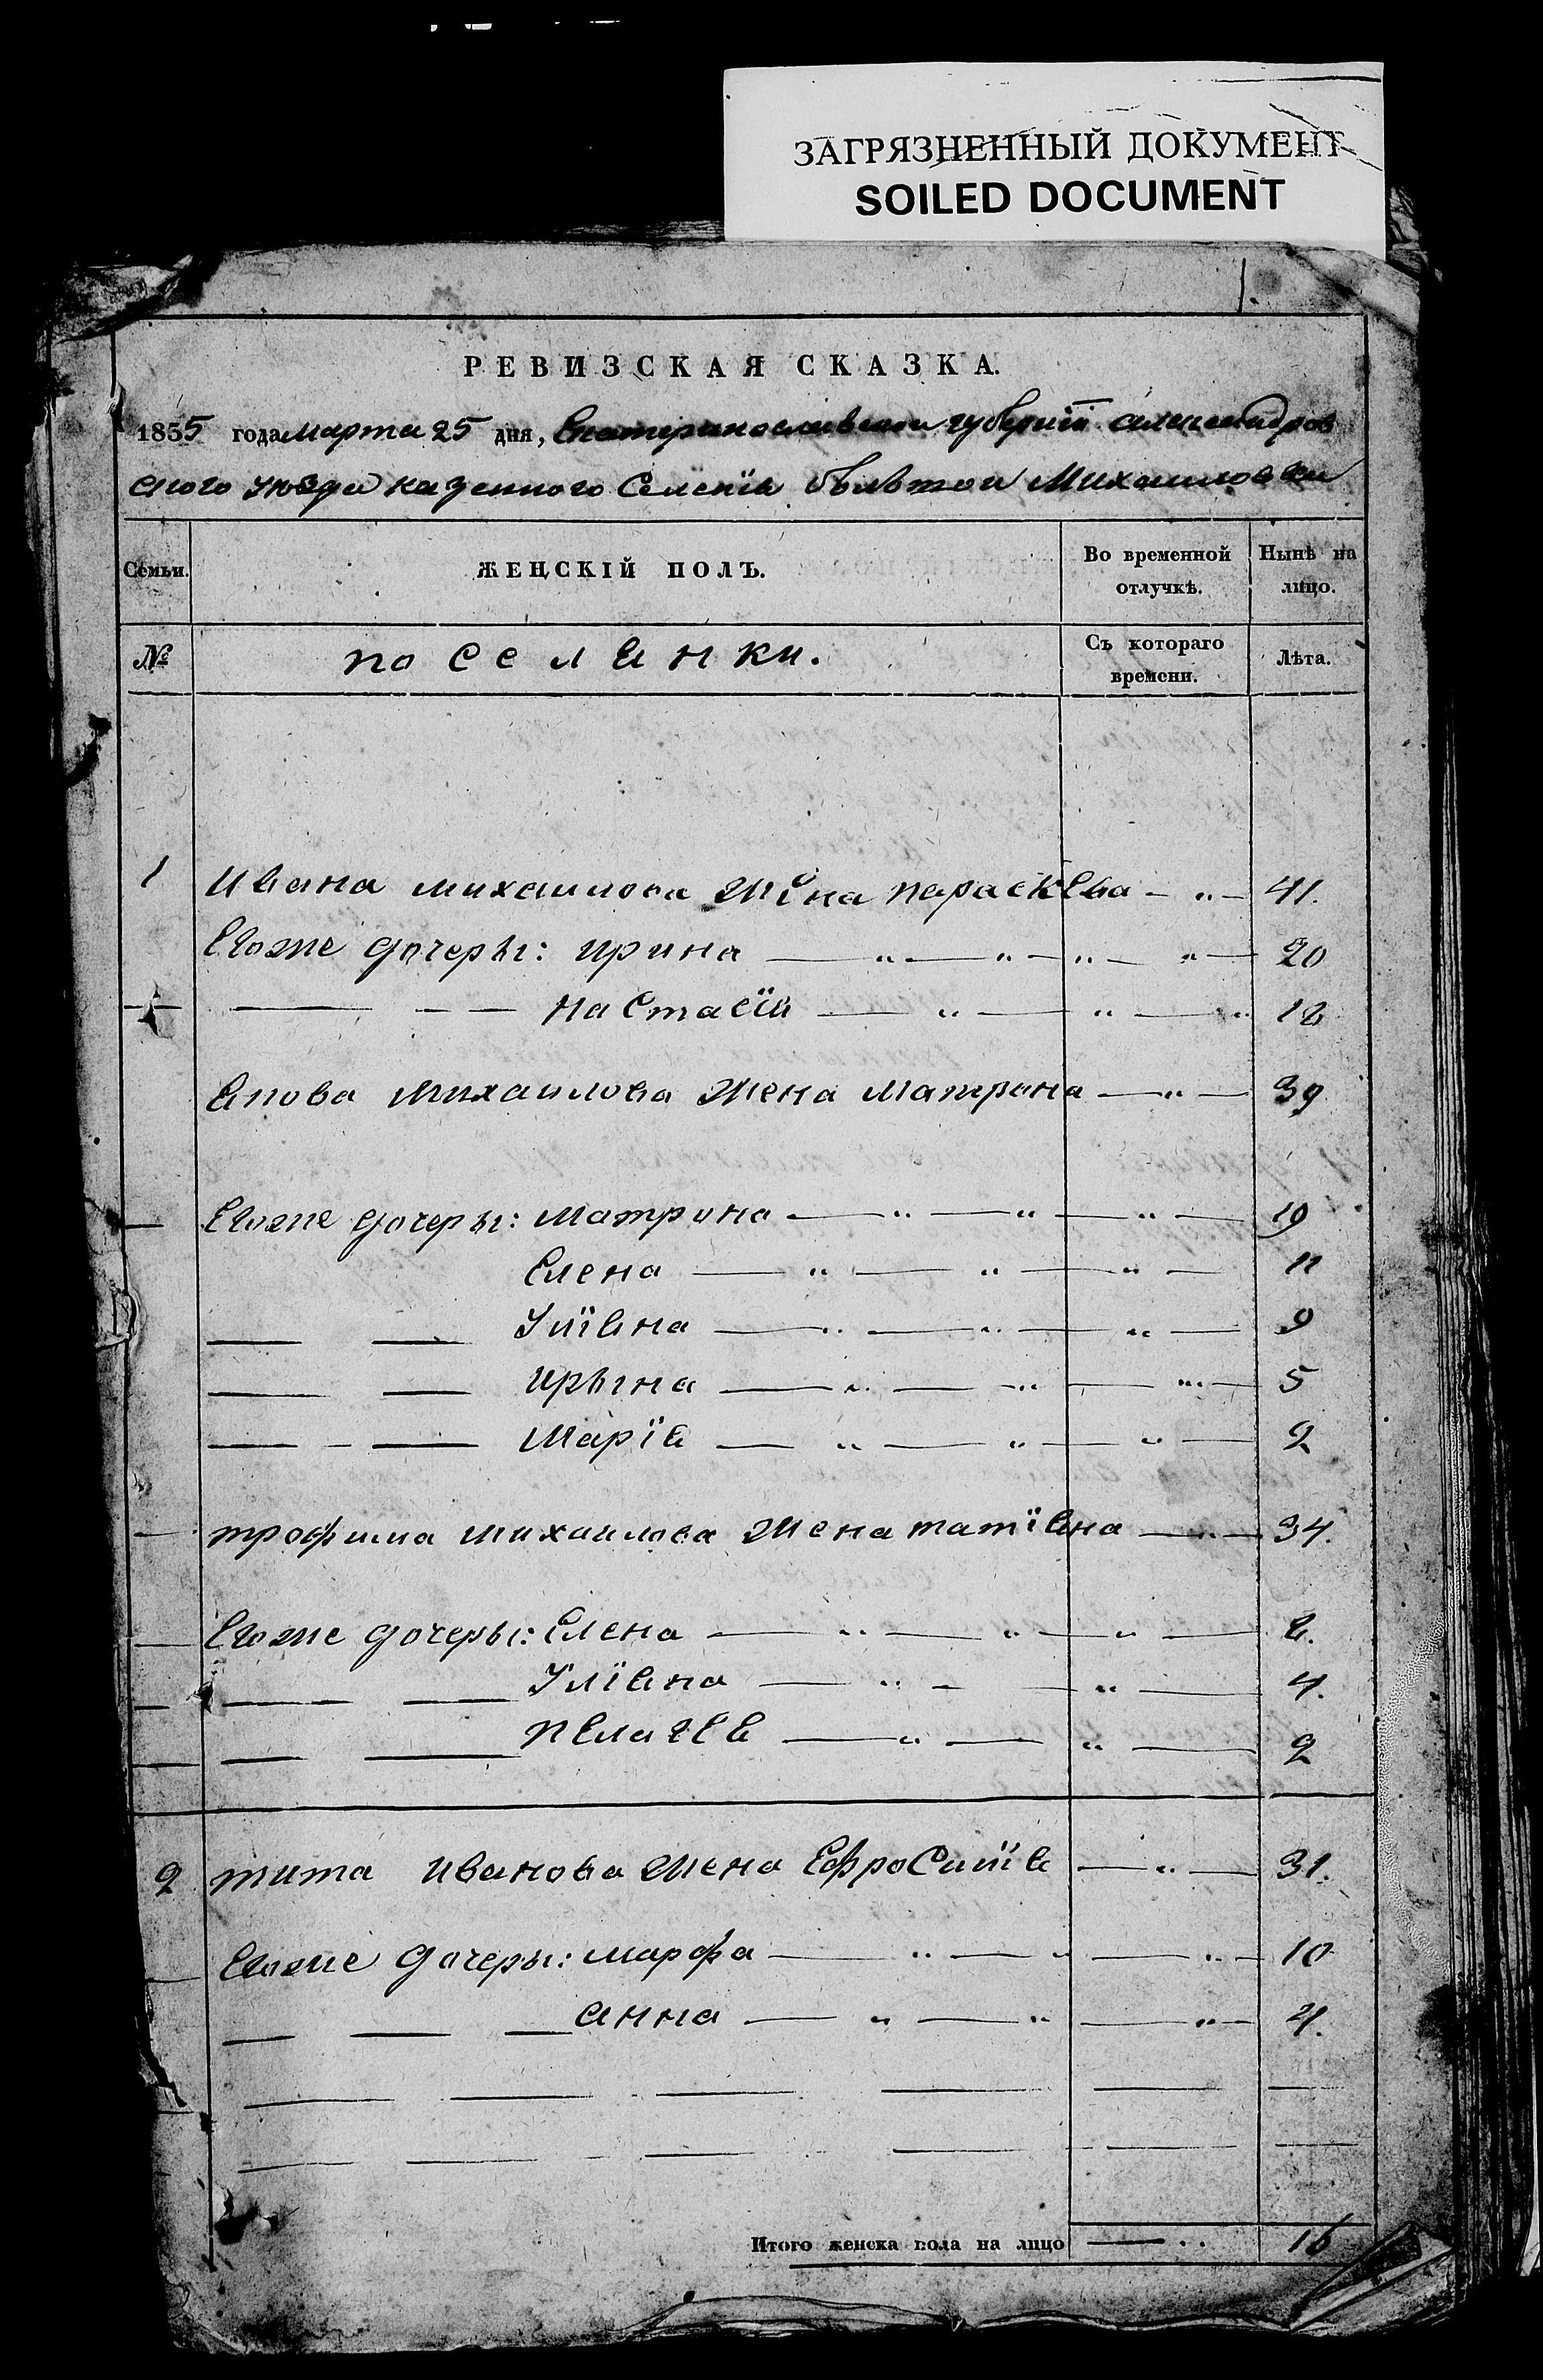 ЗАГРЯЗНЕННЫЙ ДОКУМЕНТ
SOILED DOCUMENT
1.
РЕВИЗСКАЯ СКАЗКА.
1855 года марта 25 дня, Екатеринославской губернїи александров
ского уюзда казенного Селенїя больтои Михаиловки
Семьи. ЖЕНСКІЙ ПОЛЪ. Во временной отлучкѣ. Нынѣ на лицо.
№ поселянки. Съ котораго времени. Лѣта.
1 Ивана михаилова жена параскева 41.
Егоже дочеры: ирина 20
настасїя 18
Якова михаилова жена матрона 39
Егоже дочеры: матрина 19
Елена 11
Улїяна 9
ирына 5
марїя 2
трофима михаилова жена татїяна 34.
Егоже дочеры: Елена 8.
Улїяна 4.
пелагея 2
2 тита иванова жена Ефросинїя 31.
Егоже дочеры: марфа 10
анна 4.
Итого женска пола на лицо 16